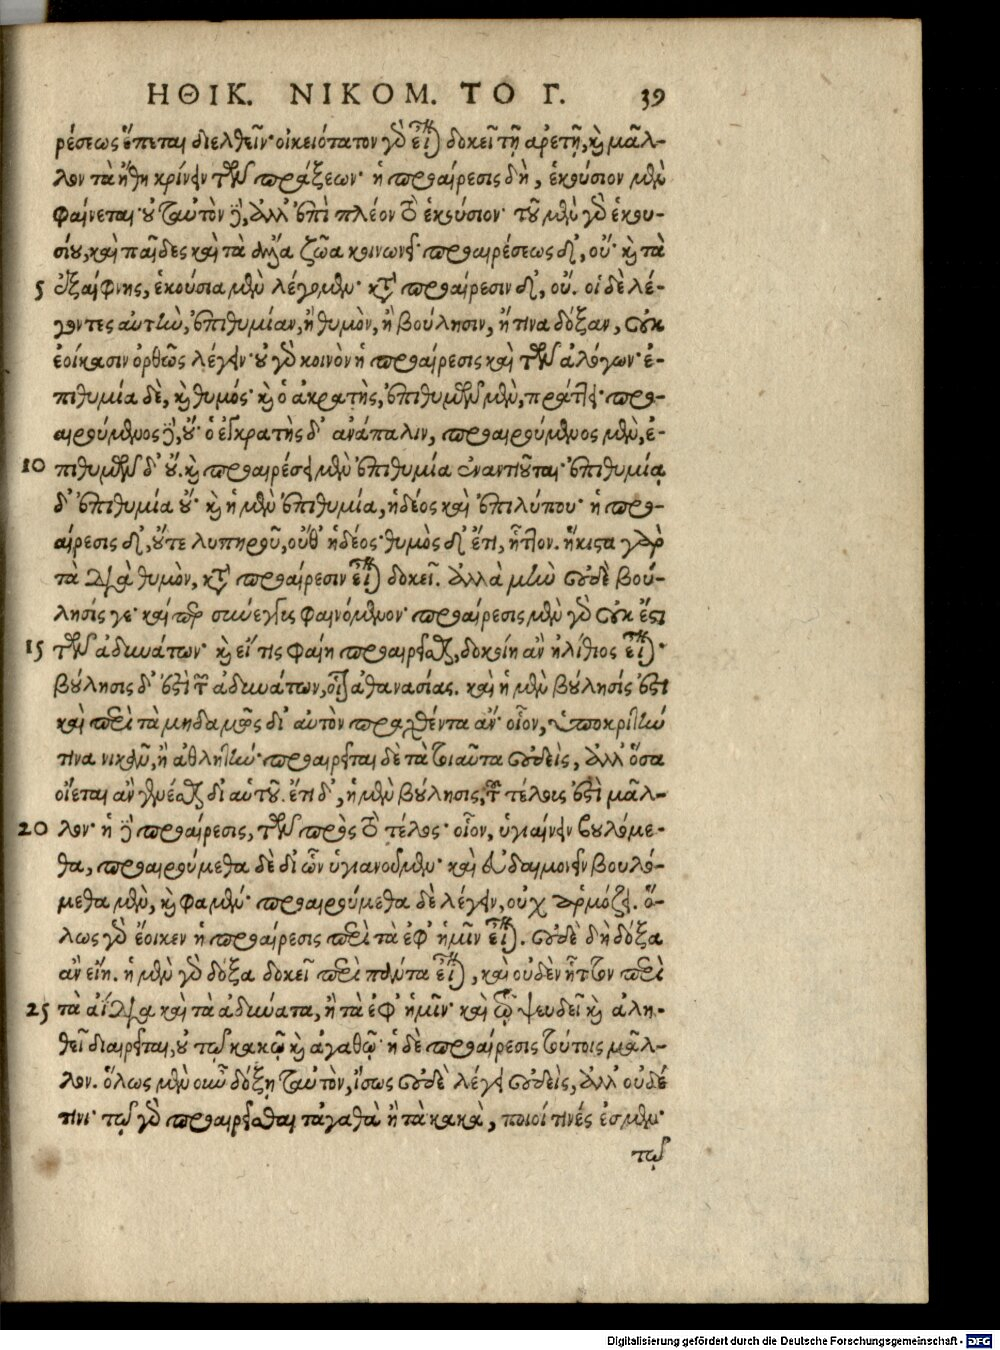 ΗΘΙΚ. ΝΙΚΟΜ. ΤΟ Γ. 39
ρέσεως ἕπεται διελθεῖν· οἰκειότατον γὸ εἶναι δοκεῖ τῇ ἀρετῇ, καὶ μᾶλ-
λον τὰ ἤθη κρίνειν τῶν πράξεων· ἡ προαίρεσις δὴ, ἑκούσιον μὲν
φαίνεται· οὐ ταυτὸν δὲ, ἀλλ' ἐπὶ πλέον τὸ ἑκούσιον· τοῦ μὲν γὸ ἑκου-
σίου, καὶ παῖδες καὶ τὰ ἄλλα ζῶα κοινωνεῖ· προαιρέσεως δ', οὔ· καὶ τὰ
5 ἐξαίφνης, ἑκούσια μὲν λέγομεν· κατὰ προαίρεσιν δ', οὔ. οἱ δὲ λέ-
γοντες αὐτὴν, ἐπιθυμίαν, ἢ θυμὸν, ἢ βούλησιν, ἤ τινα δόξαν, οὐκ
ἐοίκασιν ὀρθῶς λέγειν· οὐ γὸ κοινὸν ἡ προαίρεσις καὶ τῶν ἀλόγων· ἐ-
πιθυμία δὲ, καὶ θυμός· καὶ ὁ ἀκρατὴς, ἐπιθυμῶν μὲν, πράττει· προ-
αιρούμενος δὲ, οὔ· ὁ ἐγκρατὴς δ' ἀνάπαλιν, προαιρούμενος μὲν, ἐ-
10 πιθυμῶν δ' οὔ. καὶ προαιρέσει μὲν ἐπιθυμία ἐναντιοῦται· ἐπιθυμίᾳ
δ' ἐπιθυμία οὔ· καὶ ἡ μὲν ἐπιθυμία, ἡδέος καὶ ἐπιλύπου· ἡ προ-
αίρεσις δ', οὔτε λυπηροῦ, οὔθ' ἡδέος· θυμὸς δ' ἔτι, ἧττον. ἥκιστα γὰρ
τὰ διὰ θυμὸν, κατὰ προαίρεσιν εἶναι δοκεῖ. ἀλλὰ μὴν οὐδὲ βού-
λησίς γε· καίπερ σύνεγγυς φαινόμενον· προαίρεσις μὲν γὸ οὐκ ἔστι
15 τῶν ἀδυνάτων· καὶ εἴ τις φαίη προαιρεῖσθαι, δοκοίη ἂν ἠλίθιος εἶναι·
βούλησις δ' ἐστὶ τῶν ἀδυνάτων, οἷον ἀθανασίας. καὶ ἡ μὲν βούλησίς ἐστι
καὶ περὶ τὰ μηδαμῶς δι' αὐτὸν πραχθέντα ἄν· οἷον, ὑποκριτὴν
τινα νικᾷν, ἢ ἀθλητὴν· προαιρεῖται δὲ τὰ τοιαῦτα οὐδεὶς, ἀλλ' ὅσα
οἴεται ἂν γενέσθαι δι' αὑτοῦ. ἔτι δ', ἡ μὲν βούλησις, τοῦ τέλους ἐστὶ μᾶλ-
20 λον· ἡ δὲ προαίρεσις, τῶν πρὸς τὸ τέλος· οἷον, ὑγιαίνειν βουλόμε-
θα, προαιρούμεθα δὲ δι' ὧν ὑγιανοῦμεν· καὶ εὐδαιμονεῖν βουλό-
μεθα μὲν, καὶ φαμέν· προαιρούμεθα δὲ λέγειν, οὐχ ἁρμόζει. ὅ-
λως γὸ ἔοικεν ἡ προαίρεσις περὶ τὰ ἐφ' ἡμῖν εἶναι. οὐδὲ δὴ δόξα
ἂν εἴη. ἡ μὲν γὸ δόξα δοκεῖ περὶ πάντα εἶναι, καὶ οὐδὲν ἧττον περὶ
25 τὰ ἀΐδια καὶ τὰ ἀδύνατα, ἢ τὰ ἐφ' ἡμῖν· καὶ τῷ ψευδεῖ καὶ ἀλη-
θεῖ διαιρεῖται, οὐ τῷ κακῷ καὶ ἀγαθῷ· ἡ δὲ προαίρεσις τούτοις μᾶλ-
λον. ὅλως μὲν οὖν δόξῃ ταυτὸν, ἴσως οὐδὲ λέγει οὐδεὶς, ἀλλ' οὐδέ
τινι· τῷ γὸ προαιρεῖσθαι τἀγαθὰ ἢ τὰ κακὰ, ποιοί τινές ἐσμεν·
τῷ
Digitalisierung gefördert durch die Deutsche Forschungsgemeinschaft - DFG